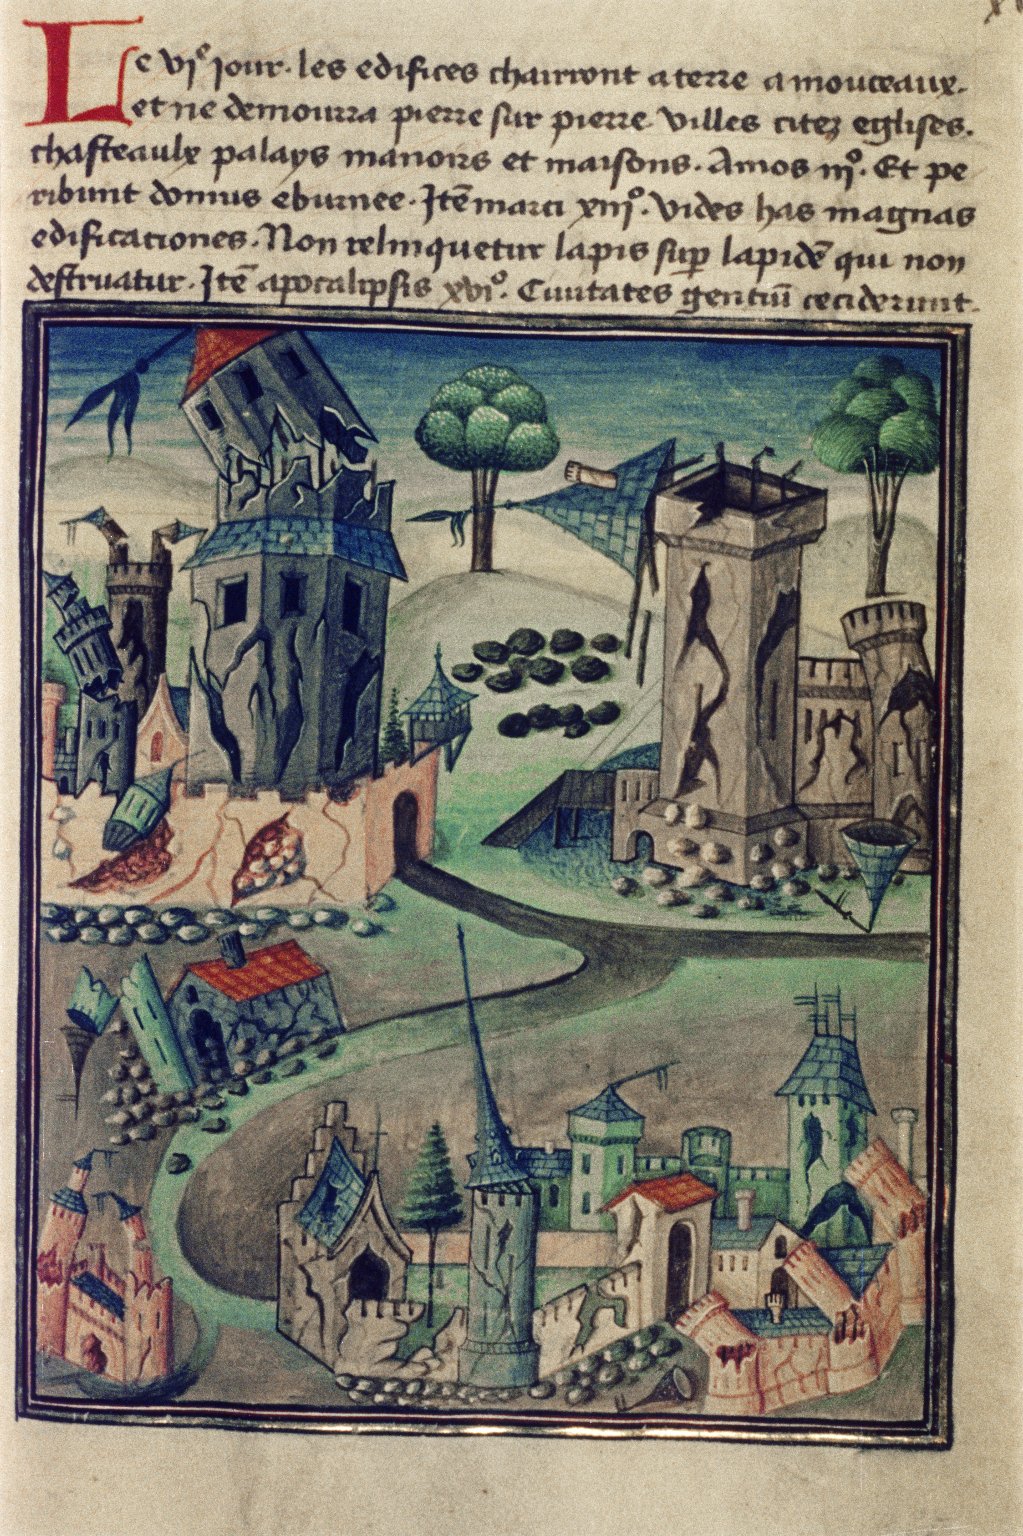 Le vjᵉ jour. les edifices chairront a terre a mouceaux.
et ne demourra pierre sur pierre. villes citez eglises.
chasteaulx palays manoirs et maisons. Amos iijº. Et pe
ribunt domus eburnee. Itē marci xiijº. Vides has magnas
edificationes. Non relinquetur lapis sup lapidē qui non
destruatur. Itē apocalipsis xviº. Ciuitates gentiū ceciderunt.